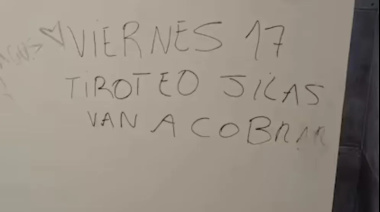 VIERNES 17
TIROTEO JICAS
VAN A COBRAR